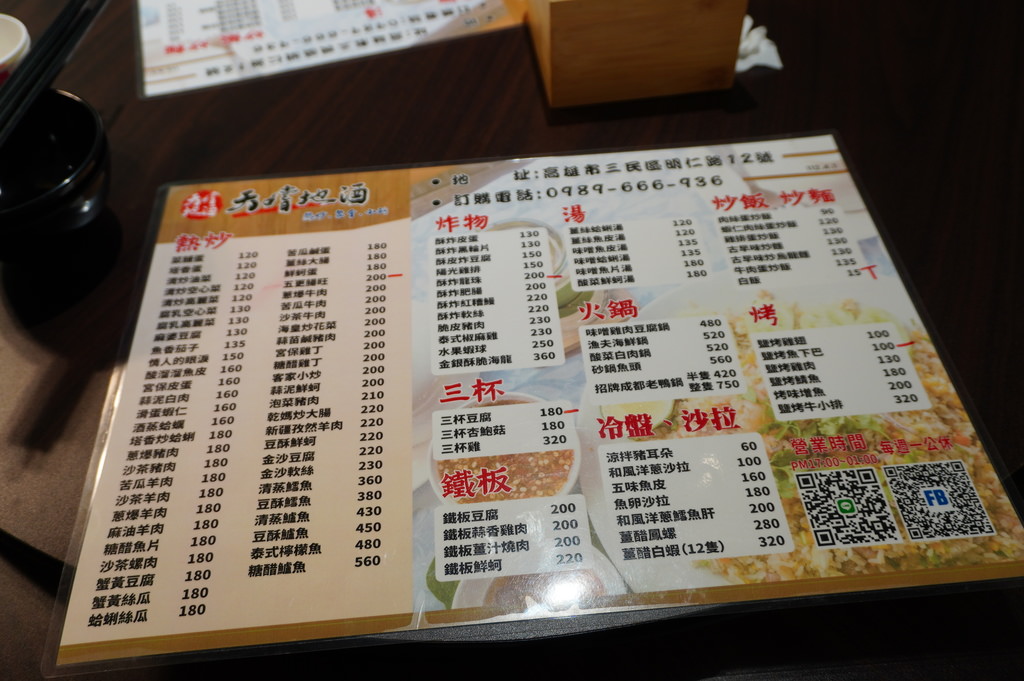 地 址:高雄市三民區明仁路12號
訂購電話:0989-666-936
地酒
熱炒
塔香蛋 120
清炒油菜 120
清炒空心菜 120
清炒高麗菜 120
腐乳空心菜 130
腐乳高麗菜 130
麻婆豆腐 130
魚香茄子 135
情人的眼淚 150
酸溜溜魚皮 160
宮保皮蛋 160
蒜泥白肉 160
滑蛋蝦仁 160
酒蒸蛤蠣 160
塔香炒蛤蜊 180
蔥爆豬肉 180
沙茶豬肉 180
苦瓜羊肉 180
沙茶羊肉 180
蔥爆羊肉 180
麻油羊肉 180
糖醋魚片 180
沙茶螺肉 180
蟹黃豆腐 180
蟹黃絲瓜 180
蛤蜊絲瓜 180
苦瓜鹹蛋 180
薑絲大腸 180
鮮蚵蛋 180
五更腸旺 200
蔥爆牛肉 200
苦瓜牛肉 200
沙茶牛肉 200
海皇炒花菜 200
蒜苗鹹豬肉 200
宮保雞丁 200
糖醋雞丁 200
客家小炒 200
蒜泥鮮蚵 200
泡菜豬肉 210
乾媽炒大腸 220
新疆孜然羊肉 220
豆酥鮮蚵 220
金沙豆腐 220
金沙軟絲 230
清蒸鱈魚 360
豆酥鱈魚 380
清蒸鱸魚 430
豆酥鱸魚 450
泰式檸檬魚 480
糖醋鱸魚 560
炸物
酥炸皮蛋 130
酥炸黑輪片 130
酥皮炸豆腐 150
陽光雞排 150
酥炸龍珠 200
酥炸肥腸 200
酥炸紅糟鰻 220
酥炸軟絲 220
脆皮豬肉 230
泰式椒麻雞 230
水果蝦球 250
金銀酥脆海龍 360
三杯
三杯豆腐 180
三杯杏鮑菇 180
三杯雞 320
鐵板
鐵板豆腐 200
鐵板蒜香雞肉 200
鐵板薑汁燒肉 200
鐵板鮮蚵 220
湯
薑絲蛤蜊湯 120
薑絲魚皮湯 120
味噌魚皮湯 135
味噌蛤蜊湯 135
味噌魚片湯 180
酸菜鮮蚵湯 180
火鍋
味噌雞肉豆腐鍋 480
漁夫海鮮鍋 520
酸菜白肉鍋 520
砂鍋魚頭 560
招牌成都老鴨鍋 半隻 420
整隻 750
冷盤、沙拉
涼拌豬耳朵 60
和風洋蔥沙拉 100
五味魚皮 160
魚卵沙拉 180
和風洋蔥鱈魚肝 200
薑醋鳳螺 280
薑醋白蝦(12隻) 320
炒飯、炒麵
肉絲蛋炒飯 90
蝦仁肉絲炒飯 120
雞排蛋炒飯 130
古早味炒麵 130
古早味炒烏龍麵 130
牛肉蛋炒飯 135
白飯 15
烤
鹽烤雞翅 100
鹽烤魚下巴 100
鹽烤雞肉 130
鹽烤鯖魚 180
烤味噌魚 200
鹽烤牛小排 320
營業時間 每週一公休
PM17:00-01:00
FB